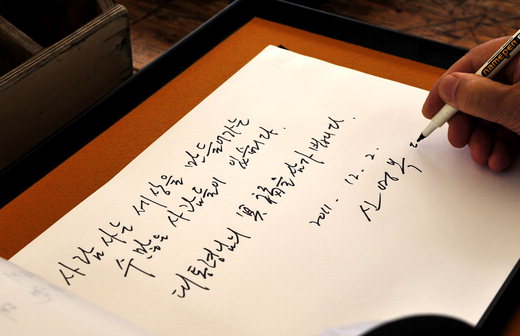 사람 사는 세상을 만들어가는
수많은 사람들이 있습니다.
대통령님의 冥福을 삼가 빕니다.
2011. 12. 2.
신영복
namepen